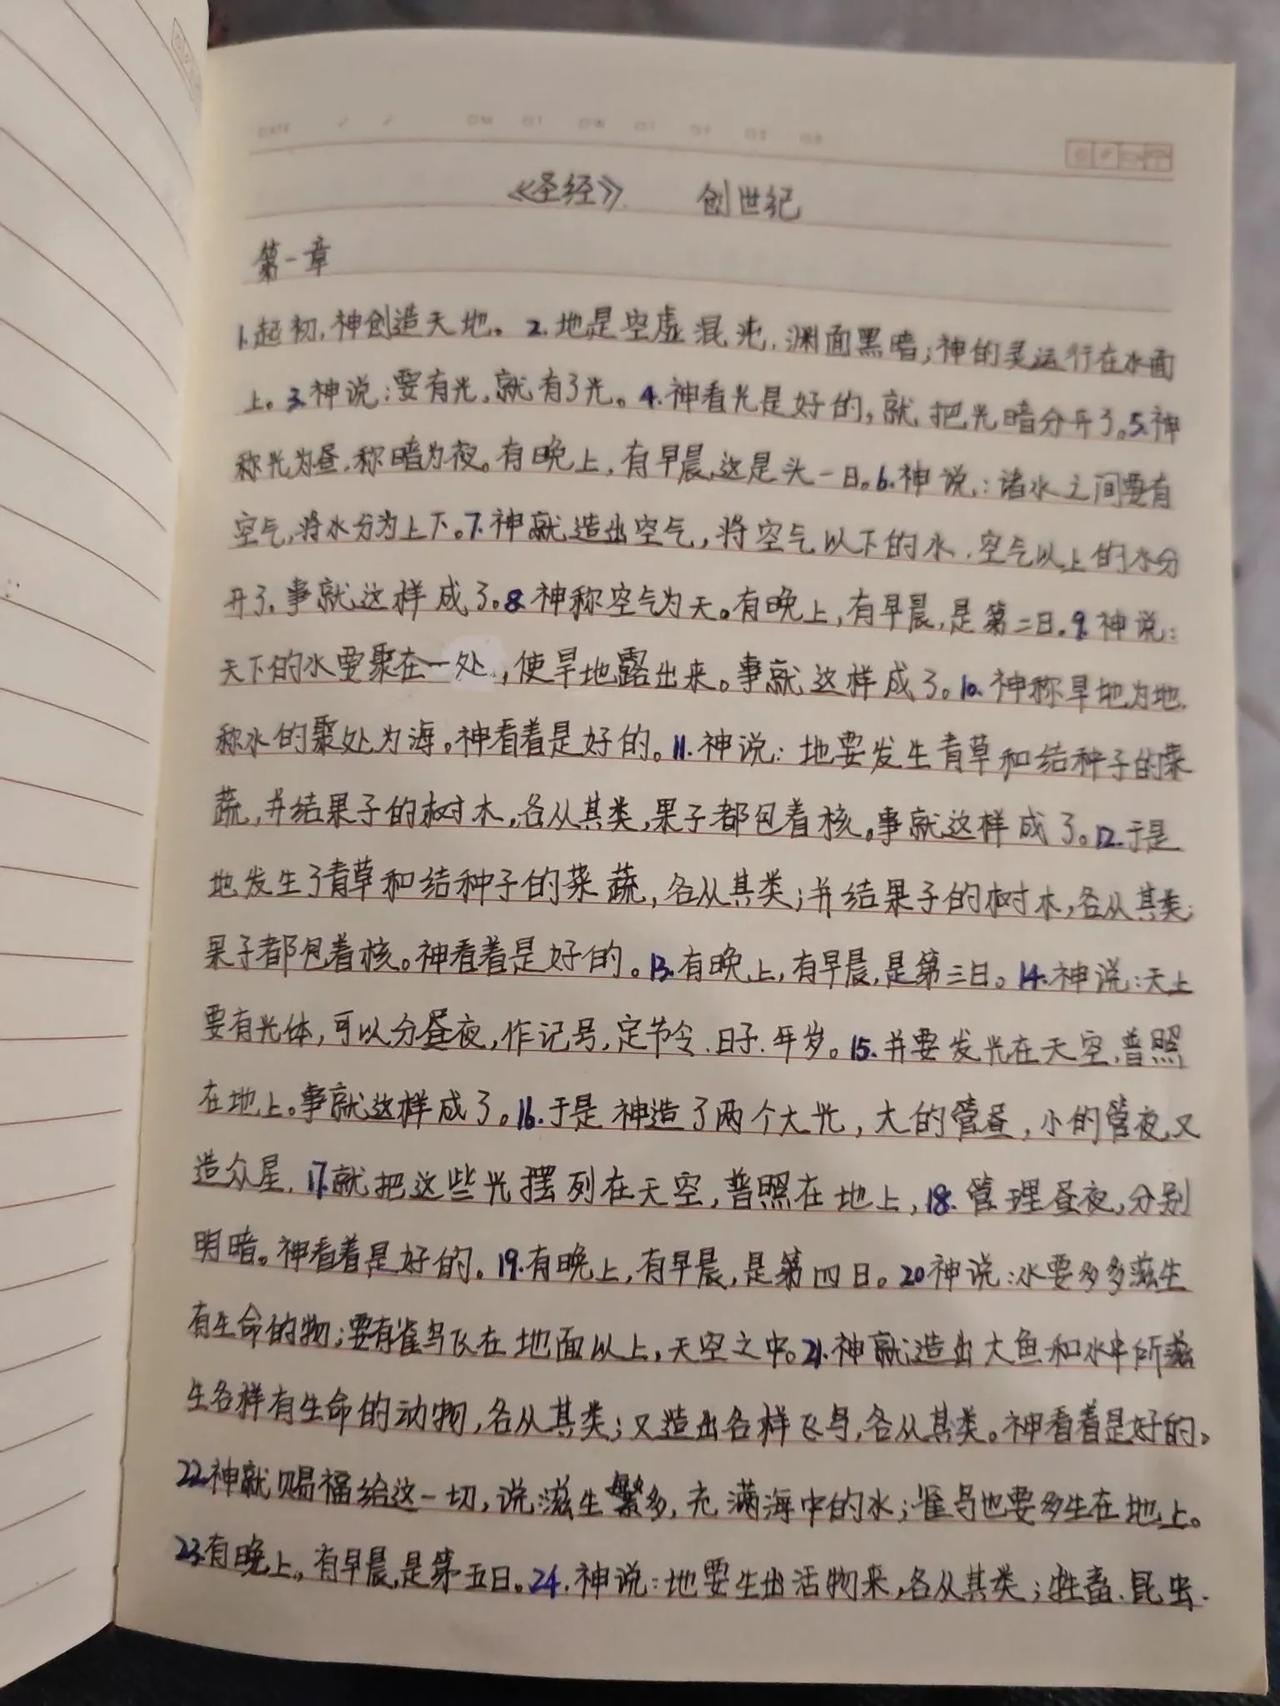 《圣经》 创世纪
第一章
1.起初,神创造天地。2.地是空虚混沌,渊面黑暗;神的灵运行在水面
上。3.神说:要有光,就有了光。4.神看光是好的,就把光暗分开了。5.神
称光为昼,称暗为夜。有晚上,有早晨,这是头一日。6.神说:诸水之间要有
空气,将水分为上下。7.神就造出空气,将空气以下的水、空气以上的水分
开了。事就这样成了。8.神称空气为天。有晚上,有早晨,是第二日。9.神说:
天下的水要聚在一处,使旱地露出来。事就这样成了。10.神称旱地为地,
称水的聚处为海。神看着是好的。11.神说:地要发生青草和结种子的菜
蔬,并结果子的树木,各从其类,果子都包着核。事就这样成了。12.于是
地发生了青草和结种子的菜蔬,各从其类;并结果子的树木,各从其类;
果子都包着核。神看着是好的。13.有晚上,有早晨,是第三日。14.神说:天上
要有光体,可以分昼夜,作记号,定节令、日子、年岁。15.并要发光在天空,普照
在地上。事就这样成了。16.于是神造了两个大光,大的管昼,小的管夜,又
造众星,17.就把这些光摆列在天空,普照在地上,18.管理昼夜,分别
明暗。神看着是好的。19.有晚上,有早晨,是第四日。20神说:水要多多滋生
有生命的物;要有雀鸟飞在地面以上,天空之中。21.神就造出大鱼和水中所滋
生各样有生命的动物,各从其类;又造出各样飞鸟,各从其类。神看着是好的。
22.神就赐福给这一切,说滋生繁多,充满海中的水;雀鸟也要多生在地上。
23.有晚上,有早晨,是第五日。24.神说:地要生出活物来,各从其类;牲畜、昆虫、